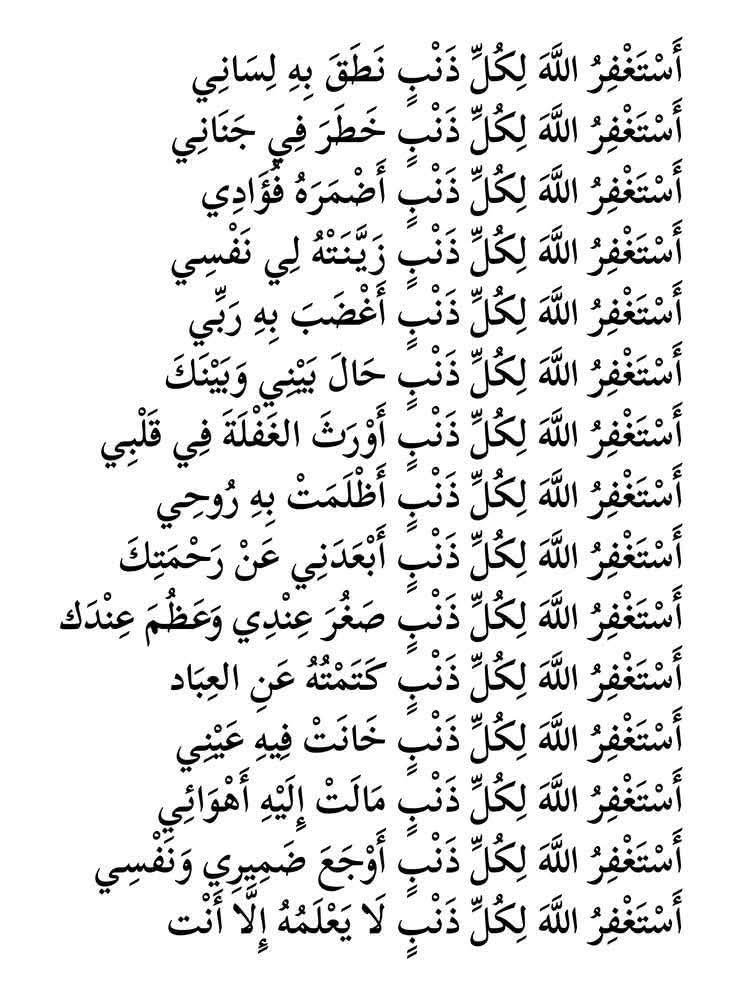 أَسْتَغْفِرُ اللَّهَ لِكُلِّ ذَنْبٍ نَطَقَ بِهِ لِسَانِي
أَسْتَغْفِرُ اللَّهَ لِكُلِّ ذَنْبٍ خَطَرَ فِي جَنَانِي
أَسْتَغْفِرُ اللَّهَ لِكُلِّ ذَنْبٍ أَضْمَرَهُ فُؤَادِي
أَسْتَغْفِرُ اللَّهَ لِكُلِّ ذَنْبٍ زَيَّنَتْهُ لِي نَفْسِي
أَسْتَغْفِرُ اللَّهَ لِكُلِّ ذَنْبٍ أَغْضَبَ بِهِ رَبِّي
أَسْتَغْفِرُ اللَّهَ لِكُلِّ ذَنْبٍ حَالَ بَيْنِي وَبَيْنَكَ
أَسْتَغْفِرُ اللَّهَ لِكُلِّ ذَنْبٍ أَوْرَثَ الغَفْلَةَ فِي قَلْبِي
أَسْتَغْفِرُ اللَّهَ لِكُلِّ ذَنْبٍ أَظْلَمَتْ بِهِ رُوحِي
أَسْتَغْفِرُ اللَّهَ لِكُلِّ ذَنْبٍ أَبْعَدَنِي عَنْ رَحْمَتِكَ
أَسْتَغْفِرُ اللَّهَ لِكُلِّ ذَنْبٍ صَغُرَ عِنْدِي وَعَظُمَ عِنْدَك
أَسْتَغْفِرُ اللَّهَ لِكُلِّ ذَنْبٍ كَتَمْتُهُ عَنِ العِبَاد
أَسْتَغْفِرُ اللَّهَ لِكُلِّ ذَنْبٍ خَانَتْ فِيهِ عَيْنِي
أَسْتَغْفِرُ اللَّهَ لِكُلِّ ذَنْبٍ مَالَتْ إِلَيْهِ أَهْوَائِي
أَسْتَغْفِرُ اللَّهَ لِكُلِّ ذَنْبٍ أَوْجَعَ ضَمِيرِي وَنَفْسِي
أَسْتَغْفِرُ اللَّهَ لِكُلِّ ذَنْبٍ لَا يَعْلَمُهُ إِلَّا أَنْت